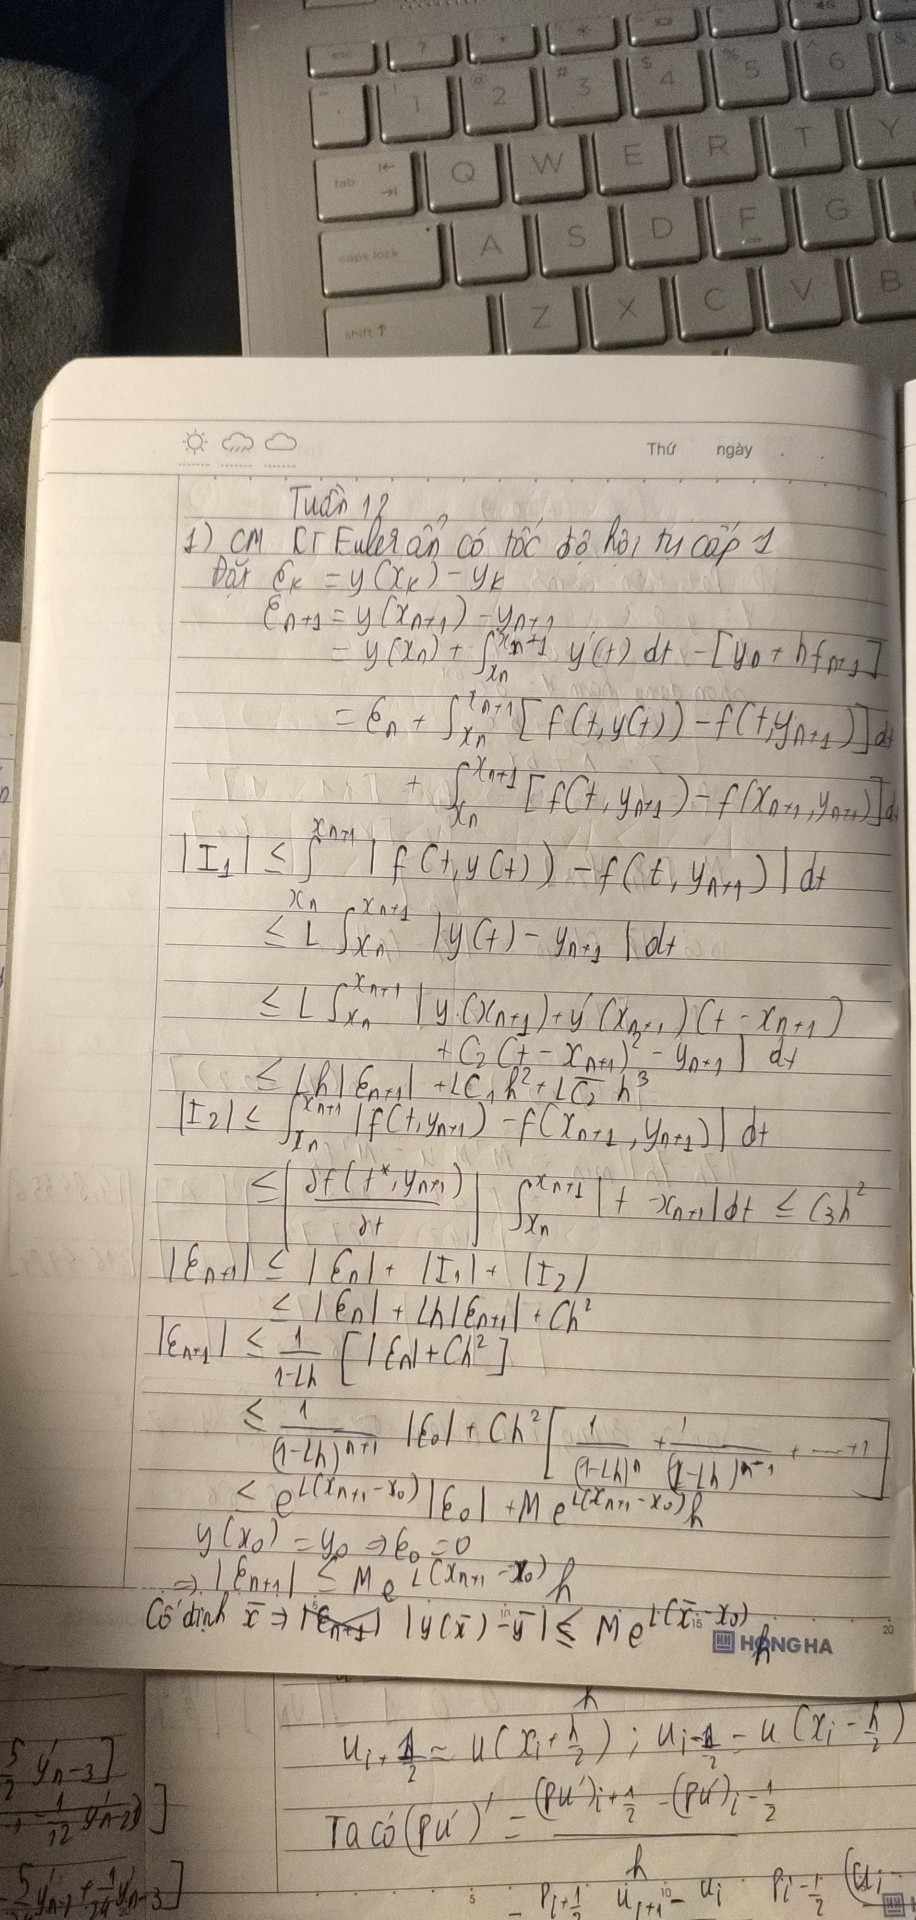 ! 1 @ 2 # 3 $ 4 % 5 ^ 6 &
tab Q W E R T Y
caps lock A S D F G
shift ↑ Z X C V B
Thứ ngày
Tuần 12
1) CM CT Euler ẩn có tốc độ hội tụ cấp 1
Đặt ε_k = y(x_k) - y_k
ε_{n+1} = y(x_{n+1}) - y_{n+1}
= y(x_n) + ∫_{x_n}^{x_{n+1}} y'(t) dt - [y_n + h f_{n+1}]
= ε_n + ∫_{x_n}^{x_{n+1}} [f(t, y(t)) - f(t, y_{n+1})] dt
+ ∫_{x_n}^{x_{n+1}} [f(t, y_{n+1}) - f(x_{n+1}, y_{n+1})] dt
|I_1| ≤ ∫_{x_n}^{x_{n+1}} |f(t, y(t)) - f(t, y_{n+1})| dt
≤ L ∫_{x_n}^{x_{n+1}} |y(t) - y_{n+1}| dt
≤ L ∫_{x_n}^{x_{n+1}} |y(x_{n+1}) + y'(x_{n+1})(t - x_{n+1})
+ C_2 (t - x_{n+1})^2 - y_{n+1}| dt
≤ Lh|ε_{n+1}| + LC_1 h^2 + L\overline{C_2} h^3
|I_2| ≤ ∫_{x_n}^{x_{n+1}} |f(t, y_{n+1}) - f(x_{n+1}, y_{n+1})| dt
≤ |∂f(t*, y_{n+1})/∂t| ∫_{x_n}^{x_{n+1}} |t - x_{n+1}| dt ≤ C_3 h^2
|ε_{n+1}| ≤ |ε_n| + |I_1| + |I_2|
≤ |ε_n| + Lh|ε_{n+1}| + Ch^2
|ε_{n+1}| ≤ 1/(1-Lh) [|ε_n| + Ch^2]
≤ 1/(1-Lh)^{n+1} |ε_0| + Ch^2 [1/(1-Lh)^n + 1/(1-Lh)^{n-1} + ... + 1]
≤ e^{L(x_{n+1} - x_0)} |ε_0| + M e^{L(x_{n+1} - x_0)} h
y(x_0) = y_0 ⇒ ε_0 = 0
⇒ |ε_{n+1}| ≤ M e^{L(x_{n+1} - x_0)} h
Cố định x̄ ⇒ |y(x̄) - ȳ| ≤ M e^{L(x̄ - x_0)} h
5 10 15 20
HONG HA
h
u_{i+1/2} = u(x_i + h/2); u_{i-1/2} = u(x_i - h/2)
Ta có (pu')' = ((pu')_{i+1/2} - (pu')_{i-1/2})/h
5/2 y'_{n-3}]